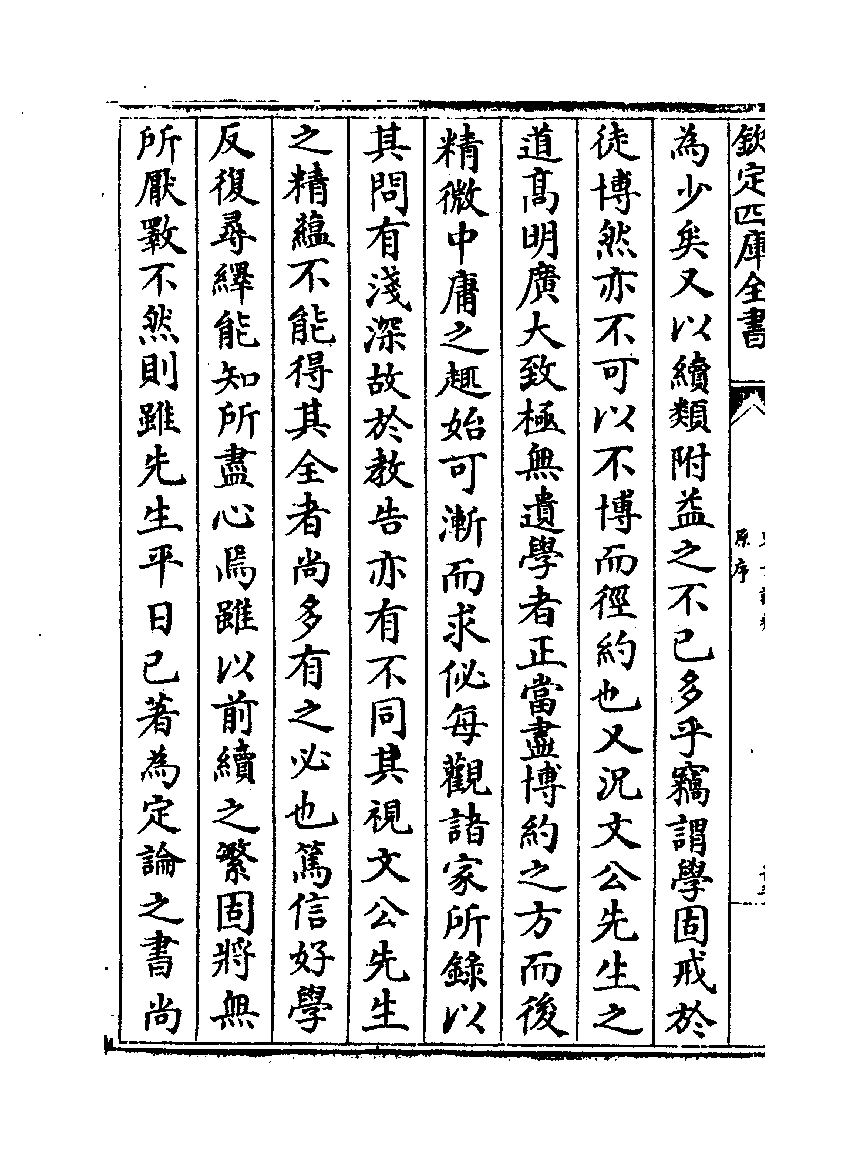 欽定四庫全書
原序
為少矣又以續類附益之不已多乎竊謂學固戒於
徒博然亦不可以不博而徑約也又況文公先生之
道髙明廣大致極無遺學者正當盡博約之方而後
精微中庸之趣始可漸而求佖每觀諸家所錄以
其問有淺深故於教告亦有不同其視文公先生
之精蘊不能得其全者尚多有之必也篤信好學
反復尋繹能知所盡心焉雖以前續之繁固將無
所厭斁不然則雖先生平日已著為定論之書尚